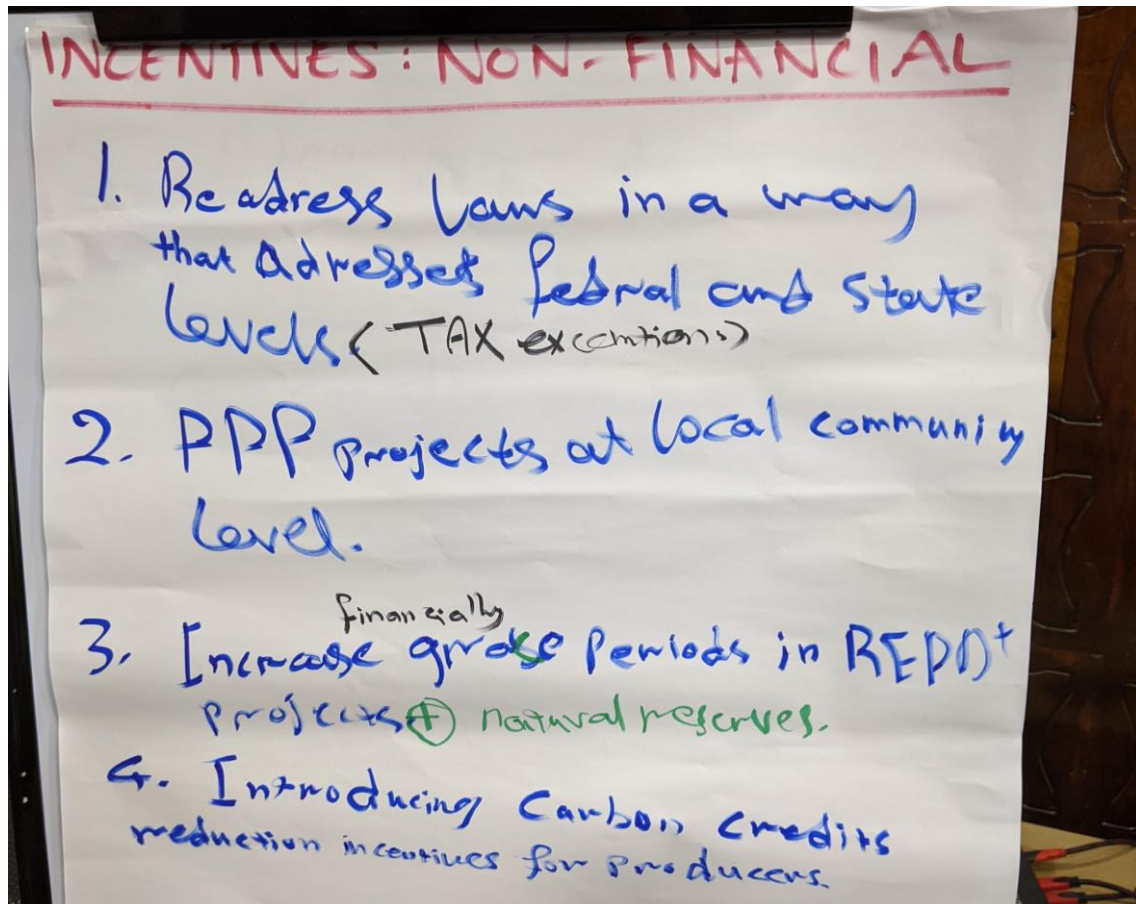 INCENTIVES: NON-FINANCIAL
1. Readress Laws in a way
that Adresses fedral and state
levels (TAX excemtions)
2. PPP projects at local community
level.
financially
3. Increase grace Periods in REDD+
projects + natural reserves.
4. Introducing Carbon credits
reduction incentives for producers.